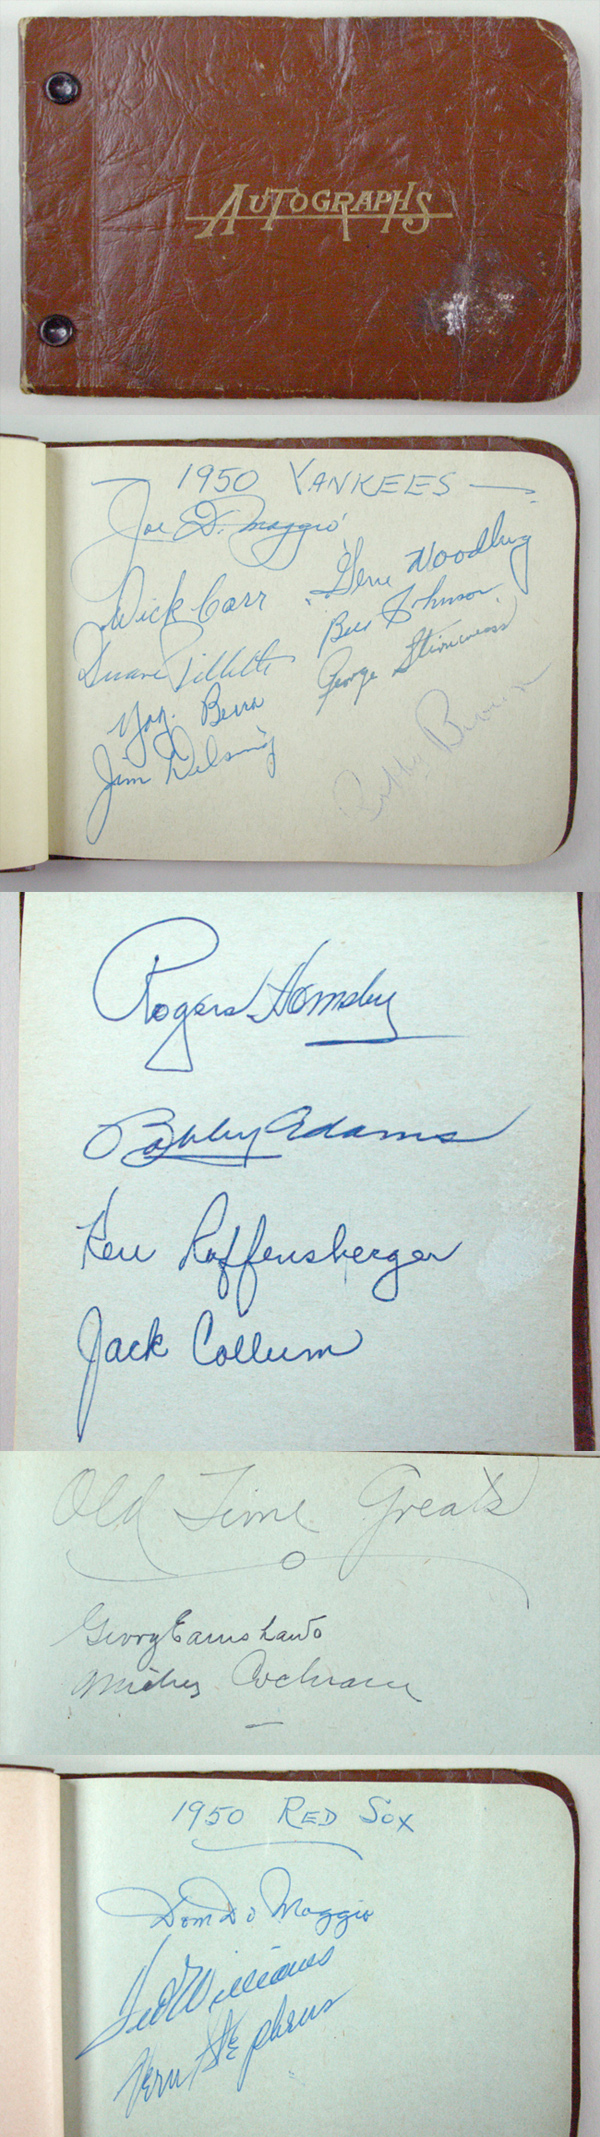 AUTOGRAPHS
1950 YANKEES
Joe DiMaggio
Dick Carr
Gene Woodling
Duane Pillette
Bill Johnson
Yogi Berra
George Stirnweiss
Jim Delsing
Bobby Brown
Rogers Hornsby
Bobby Adams
Ken Raffensberger
Jack Collum
Old Time Greats
George Earnshaw
Mickey Cochrane
1950 RED SOX
Dom DiMaggio
Ted Williams
Vern Stephens